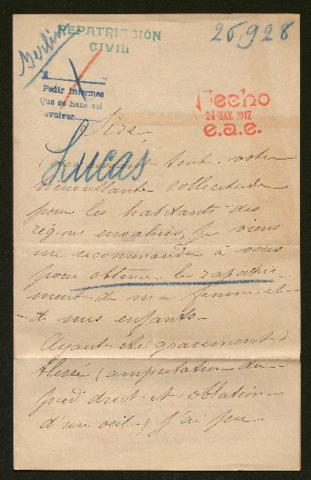 REPATRIACIÓN
CIVIL
26.928
Berlin
A
Pedir informes
Que se hace así
evolver
Fecho
24 MAY. 1917
e.a.e.
Sire,
Lucas
Connaissant tout votre
bienveillante sollicitude
pour les habitants des
régions envahies, je viens
me recommander à vous
pour obtenir le rapatrie-
ment de ma femme et
de mes enfants.
Ayant été gravement
blessé (amputation du
pied droit et ablation
d'un oeil) j'ai peu